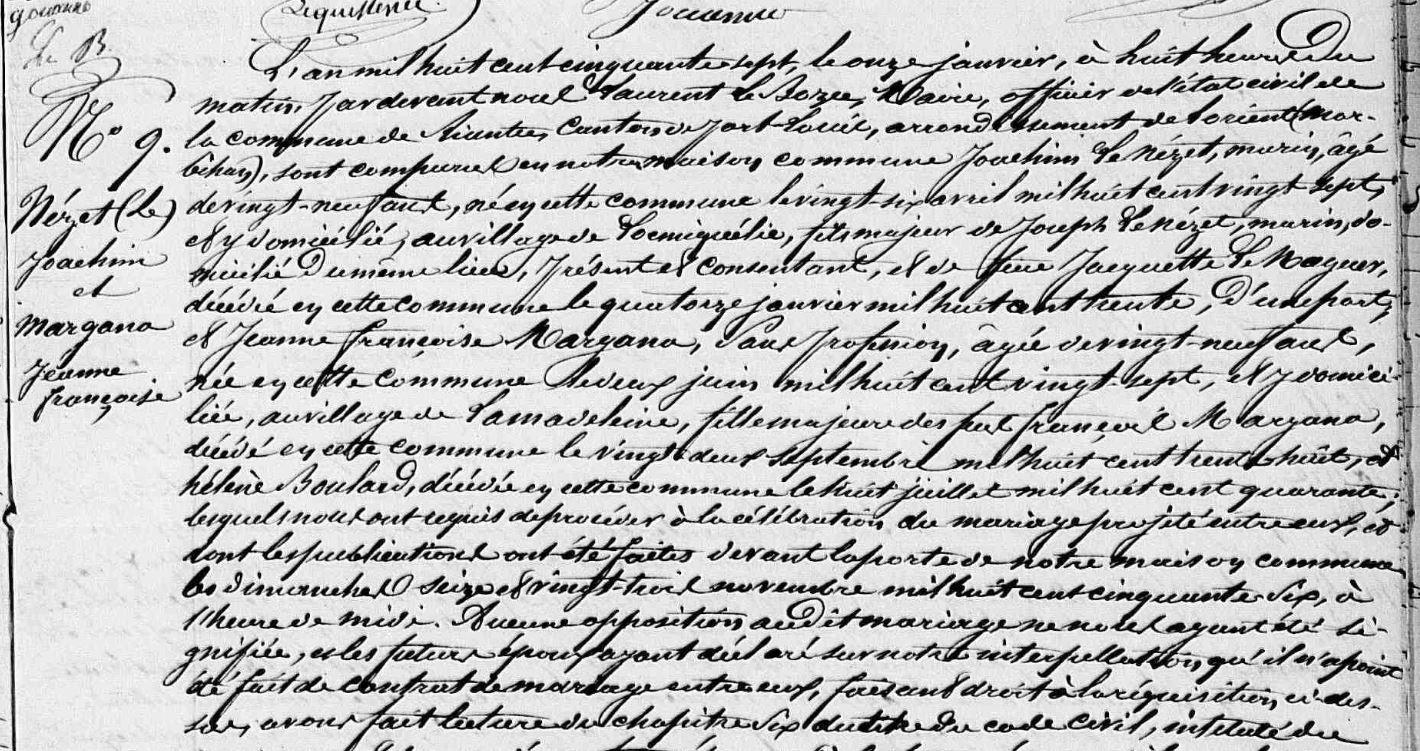 gouanno
Lequellenec
Jouanno
Le B.
N° 9.
Nézet (Le)
Joachim
et
Margano
Jeanne
françoise
L'an mil huit cent cinquante sept, le onze janvier, à huit heures du
matin, par devant nous Laurent Le Bozec, Maire, officier de l'état civil de
la commune de Riantec, canton de Port-Louis, arrondissement de Lorient (Mor-
bihan), sont comparus en notre maison commune Joachim Le Nézet, marin, âgé
de vingt-neuf ans, né en cette commune le vingt-six avril mil huit cent vingt sept,
et y domicilié, au village de Locmiquélic, fils majeur de Joseph Le Nézet, marin, do-
micilié du même lieu, présent et consentant, et de feue Jacquette Le Maguer,
décédée en cette commune le quatorze janvier mil huit cent trente, d'une part;
et Jeanne françoise Margano, sans profession, âgée de vingt-neuf ans,
née en cette commune le deux juin mil huit cent vingt-sept, et y domici-
liée, au village de Lamadeleine, fille majeure des feus françois Margano,
décédé en cette commune le vingt deux septembre mil huit cent trente huit, et
hélène Boulard, décédée en cette commune le huit juillet mil huit cent quarante;
lesquels nous ont requis de procéder à la célébration du mariage projeté entre eux, et
dont les publications ont été faites devant la porte de notre maison commune
les dimanches seize et vingt-trois novembre mil huit cent cinquante six, à
l'heure de midi. Aucune opposition audit mariage ne nous ayant été si-
gnifiée, et les futurs époux ayant déclaré sur notre interpellation qu'il n'a point
été fait de contrat de mariage entre eux, faisant droit à la réquisition ci-des-
sus, avons fait lecture du chapitre six du titre du code civil, intitulé du